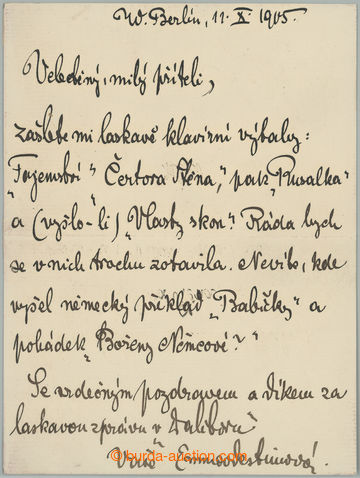 W. Berlín, 11. X 1905.
Velectěný, milý příteli,
zašlete mi laskavě klavírní výtahy:
"Tajemství" "Čertova stěna," pak "Rusalka"
a (vyšlo-li) "Vlasty skon". Ráda bych
se v nich trochu zotavila. Nevíte, kde
vyšel německý překlad "Babičky" a
pohádek "Boženy Němcové?"
Se srdečným pozdravem a díkem za
laskavou zprávu v "Daliboru"
Vaše Emmy Destinnová.
© burda-auction.com